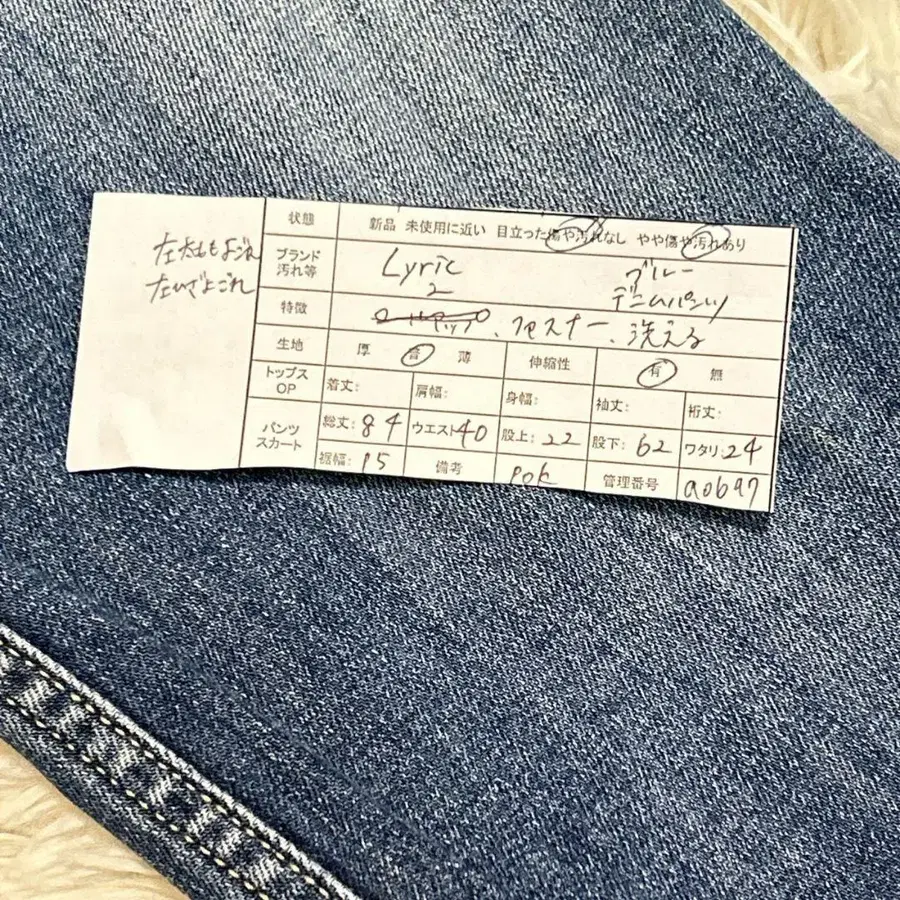 左太ももよごれ
左ひざよごれ
状態 新品 未使用に近い 目立った傷や汚れなし やや傷や汚れあり
ブランド 汚れ等 Lyric 2 ブルー デニムパンツ
特徴 、ファスナー、洗える
生地 厚 普 薄 伸縮性 有 無
トップス OP 着丈: 肩幅: 身幅: 袖丈: 裄丈:
パンツ スカート 総丈: 84 ウエスト40 股上: 22 股下: 62 ワタリ: 24
裾幅: 15 備考 pok 管理番号 a0697